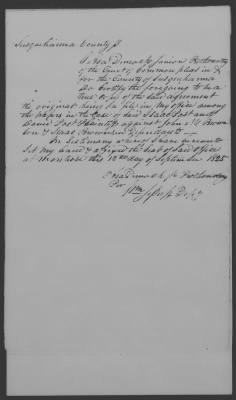 Susquehanna County ss
I Asa Dimock Junior Prothonotary
of the Court of Common pleas in &
for the County of Susquehanna
do Certify the foregoing to be a
true Copy of the Said agreement
the original being on file in my office among
the papers in the Case of Said Isaac Post and
David Post Plaintiffs against John
& Isaac Brownson Defendants
In testimony whereof I have hereunto
Set my hand & affixed the Seal of Said office
at Montrose this 12th day of September 1825
Asa Dimock Jr Prothonotary
Per
Wm Jessup Depy